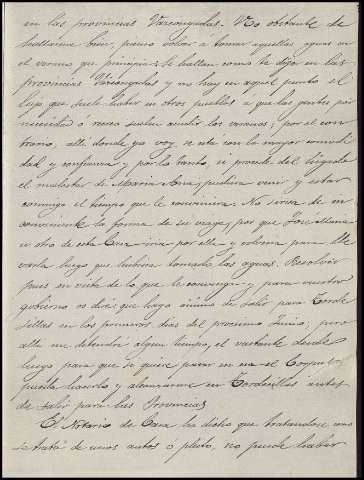 en las provincias Vascongadas. No obstante de
hallarme bien, pienso volver a tomar aquellas aguas en
el verano que principia. Se hallan como te dije en las
provincias Vascongadas y no hay en aquel punto el
lujo que suele haber en otros pueblos a que las gentes por
necesidad ó recreo suelen acudir los veranos; por el con
trario, allí donde yo voy se esta con la mayor comodi
dad y confianza y por lo tanto, si procede del hígado
el malestar de María Ana, pudiera venir y estar
conmigo el tiempo que le conviniera. No sirva de in
conveniente la forma de su viage, por que José Maria
ú otro de esta Casa iria por ella y volveria para lle
varla luego que hubiera tomado las aguas. Resolver
pues en vista de lo que le convenga y para vuestro
gobierno os diré que hago ánimo de salir para Torde
sillas en los primeros dias del proximo Junio; pero
alli me detendré algun tiempo, el bastante desde
luego para que si quiere pasar en esa el Corpus
pueda hacerlo y alcanzarme en Tordesillas antes
de salir para las Provincias
El Notario de Casa ha dicho que tratandose como
se trata de unos autos ó pleito, no puede haber